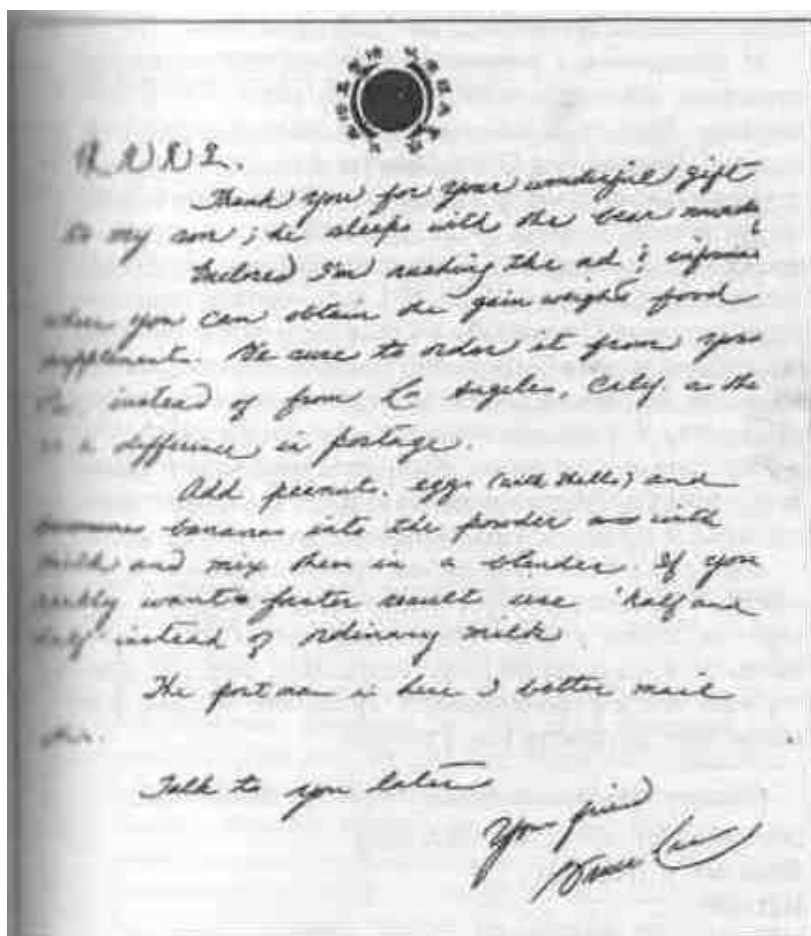 Thank you for your wonderful gift
to my son; he sleeps with the bear
Enclosed I'm rushing the ad &
where you can obtain the gain weight food
supplement. Be sure to order it from
instead of from Los Angeles, Calif. as
is a difference in postage.
Add peanuts, eggs (with shells) and
bananas into the powder with
milk and mix them in a blender. If you
really want faster result use 'half and
half' instead of ordinary milk
The postman is here I better mail
this.
Talk to you later
Your friend
Bruce Lee